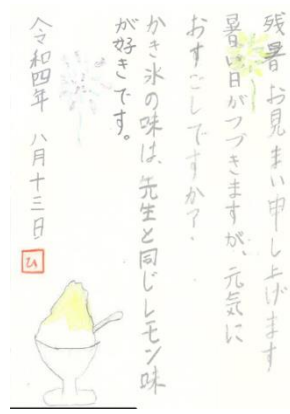 残暑お見まい申し上げます
暑い日がつづきますが、元気に
おすごしですか？
かき氷の味は、先生と同じレモン味
が好きです。
令和四年 八月十三日
ひ